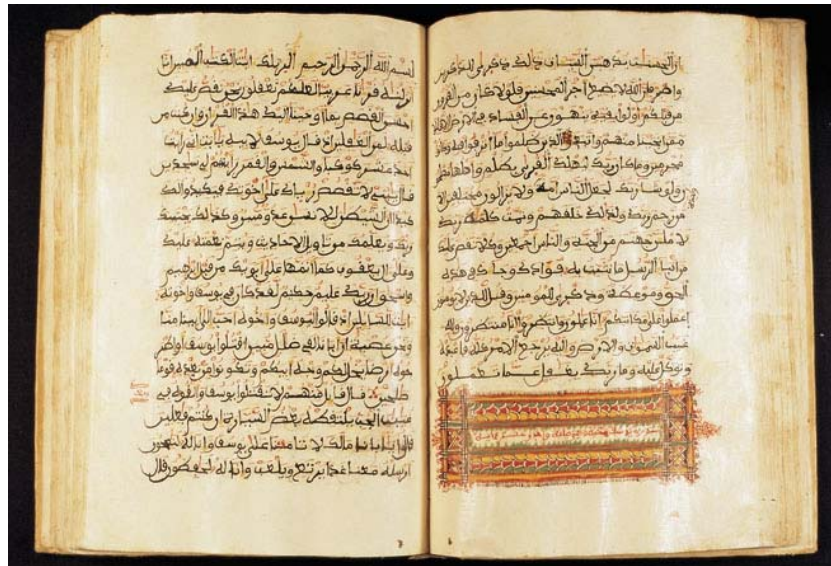 ان الحسنت يذهبن السيات ذلك ذكرى للذكرين
واصبر فان الله لا يضيع اجر المحسنين فلولا كان من القرون
من قبلكم اولوا بقية ينهون عن الفساد في الارض الا قليلا
ممن انجينا منهم واتبع الذين ظلموا ما اترفوا فيه وكانوا
مجرمين وما كان ربك ليهلك القرى بظلم واهلها مصلحون
ولو شا ربك لجعل الناس امة ولا يزالون مختلفين الا
وحدة
من رحم ربك ولذلك خلقهم وتمت كلمة ربك
لاملئن جهنم من الجنة والناس اجمعين وكلا نقص عليك
من انبا الرسل ما نثبت به فوادك وجاك في هذه
الحق وموعظة وذكرى للمومنين وقل للذين لا يومنون
اعملوا على مكانتكم انا عملون وانتظروا انا منتظرون ولله
غيب السموت والارض واليه يرجع الامر كله فاعبده
وتوكل عليه وما ربك بغفل عما تعملون
بسم الله الرحمن الرحيم الر تلك ايت الكتب المبين انا
انزلنه قرانا عربيا لعلكم تعقلون نحن نقص عليك
احسن القصص بما اوحينا اليك هذا القران وان كنت من
قبله لمن الغفلين اذ قال يوسف لابيه يابت اني رايت
احد عشر كوكبا والشمس والقمر رايتهم لي سجدين
قال يبني لا تقصص رياك على اخوتك فيكيدوا لك
كيدا ان الشيطن للانسن عدو مبين وكذلك يجتبيك
ربك ويعلمك من تاويل الاحاديث ويتم نعمته عليك
وعلى ال يعقوب كما اتمها على ابويك من قبل ابرهيم
واسحق ان ربك عليم حكيم لقد كان في يوسف واخوته
ايت للسايلين اذ قالوا ليوسف واخوه احب الى ابينا منا
ونحن عصبة ان ابانا لفي ضلل مبين اقتلوا يوسف او اطر
حوه ارضا يخل لكم وجه ابيكم وتكونوا من بعده قوما
صلحين قال قايل منهم لا تقتلوا يوسف والقوه في
غيبت الجب يلتقطه بعض السيارة ان كنتم فعلين
قالوا يابانا مالك لا تامنا على يوسف وانا له لنصحون
ارسله معنا غدا يرتع ويلعب وانا له لحفظون قال